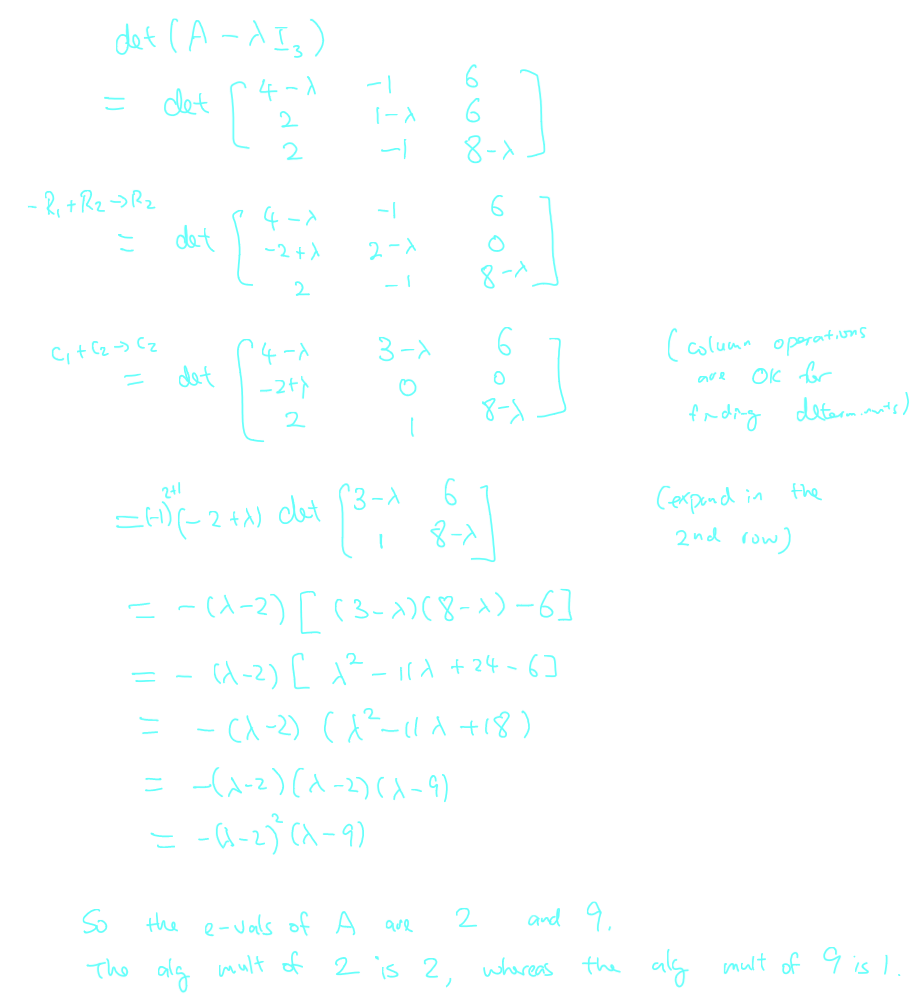 det(A − λI₃)
= det [ 4−λ −1 6
2 1−λ 6
2 −1 8−λ ]
−R₁+R₂→R₂
= det [ 4−λ −1 6
−2+λ 2−λ 0
2 −1 8−λ ]
C₁+C₂→C₂
= det [ 4−λ 3−λ 6
−2+λ 0 0
2 1 8−λ ]
(column operations
are OK for
finding determinants)
= (−1)²⁺¹(−2+λ) det [ 3−λ 6
1 8−λ ]
(expand in the
2nd row)
= −(λ−2) [ (3−λ)(8−λ) −6 ]
= −(λ−2) [ λ² − 11λ + 24 − 6 ]
= −(λ−2) (λ² − 11λ + 18)
= −(λ−2)(λ−2)(λ−9)
= −(λ−2)²(λ−9)
So the e-vals of A are 2 and 9.
The alg mult of 2 is 2, whereas the alg mult of 9 is 1.